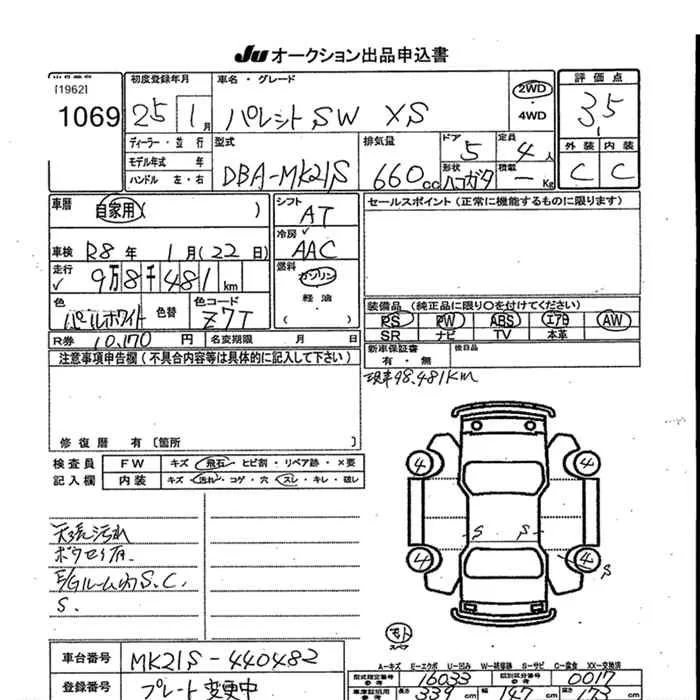 Ju オークション出品申込書
[1962]
1069
初度登録年月
25 1月
車名・グレード
パレットSW XS
2WD
・
4WD
評価点
3.5
外装 内装
C C
ディーラー・並行
モデル年式 年
ハンドル 左・右
型式
DBA-MK21S
排気量
660cc
ドア
5
形状
ハコガタ
定員
4人
積載
— Kg
車歴
自家用( )
車検 R8年 1月(22日)
走行
9万8千481km
色
パールホワイト
色替
色コード
Z7T
シフト
AT
冷房
AAC
燃料
ガソリン
・
軽油
( )
セールスポイント(正常に機能するものに限ります)
装備品(純正品に限り○を付けてください)
PS PW ABS エアB AW
SR ナビ TV 本革
新車保証書
有・無
後日品
R券 10,170円
名変期限 月 日
現車98.481Km
注意事項申告欄(不具合内容等は具体的に記入して下さい)
修復歴 有〔箇所 〕
検査員
記入欄
FW キズ・飛石・ヒビ割・リペア跡・×要
内装 キズ・汚れ・コゲ・穴・スレ・キレ・破レ
天張汚れ
ボウセイ有.
E/Gルーム内S.C.
S.
4 4
S S
4 4
S
モト
スペア
A-キズ E-エクボ U-凹み W-補修跡 S-サビ C-腐食 XX-交換済
車台番号 MK21S-440482
登録番号 プレート変更中
型式指定番号
参考
16033
類別区分番号
参考
0017
車車証記載
参考
長さ
339cm
147cm
173cm